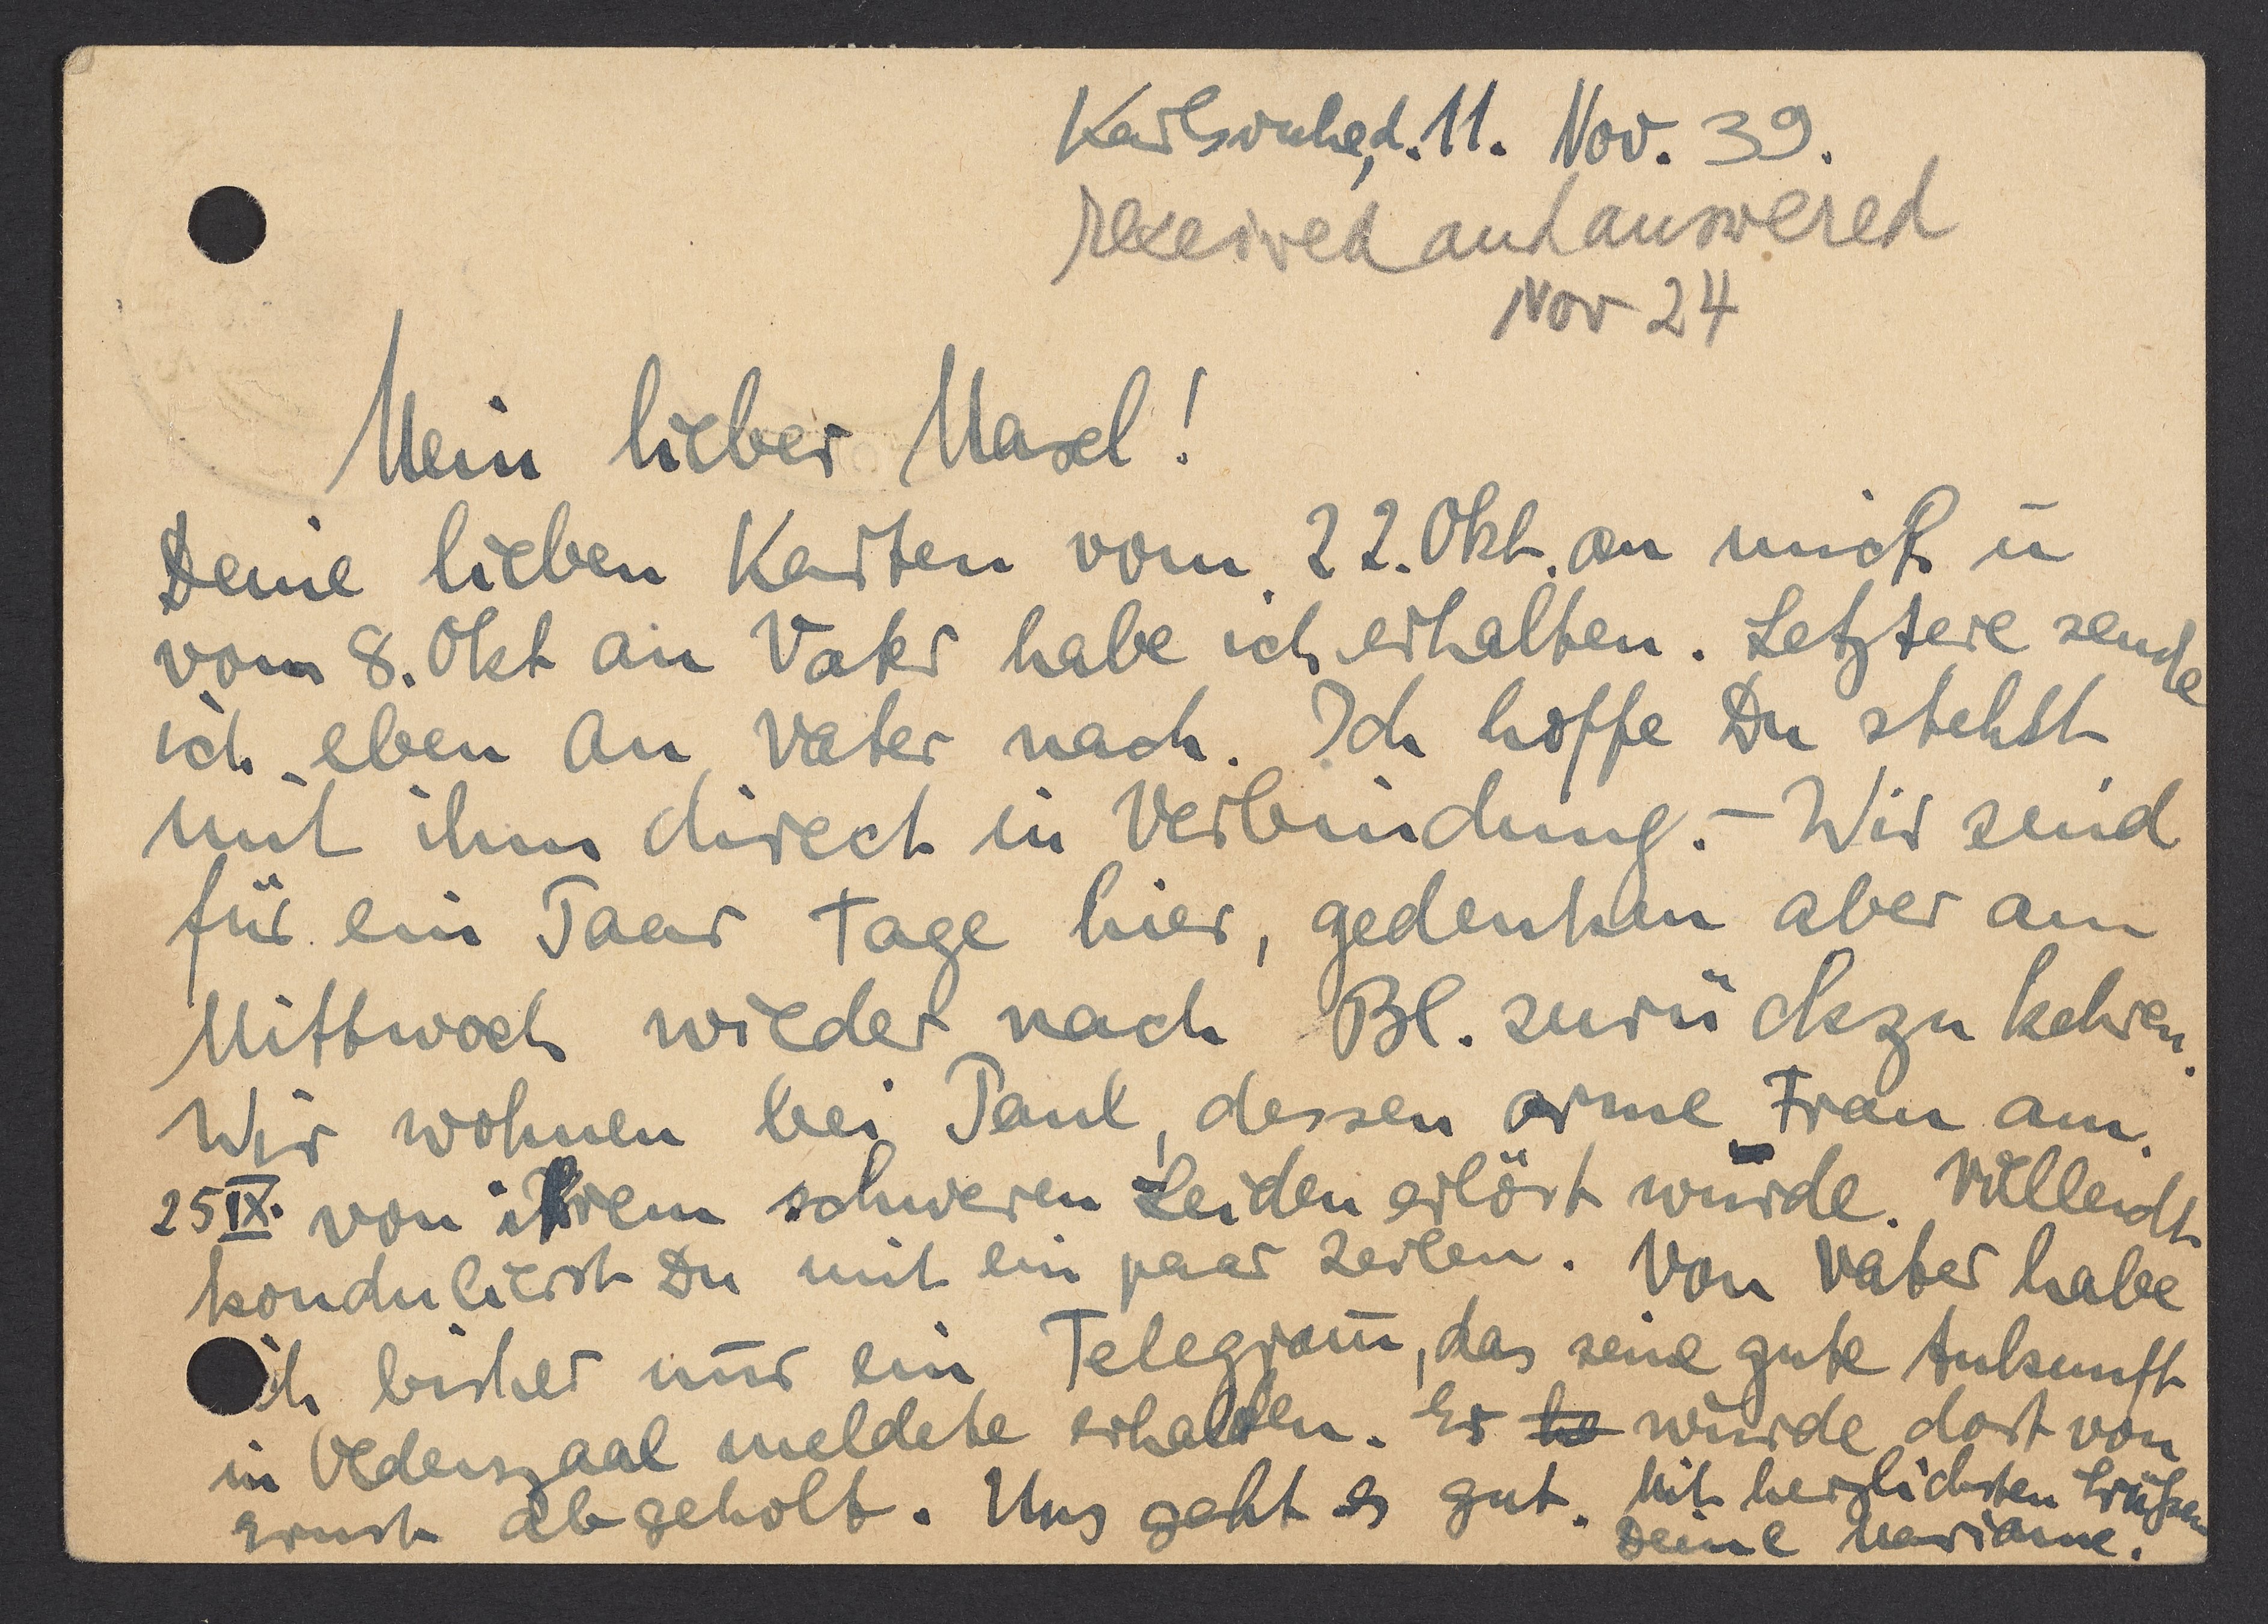 Karlsruhe, d. 11. Nov. 39.
received and answered
Nov 24
Mein lieber Maxel!
Deine lieben Karten vom 22. Okt. an mich ū
vom 8. Okt an Vater habe ich erhalten. Letztere sende
ich eben an Vater nach. Ich hoffe Du stehst
mit ihm direct in Verbindung. – Wir sind
für ein Paar Tage hier, gedenken aber am
Mittwoch wieder nach Bl. zurückzukehren.
Wir wohnen bei Paul, dessen arme Frau am
25 IX. von ihrem schweren Leiden erlöst wurde. Villeicht
kondulierst Du mit ein paar Zeilen. Von Vater habe
ich bisher nur ein Telegram̄, das seine gute Ankunft
in Oldenzaal meldete erhalten. Er ha wurde dort von
Ernst abgeholt. Uns geht es gut. Mit herzlichsten Grüßen
Deine Marianne.